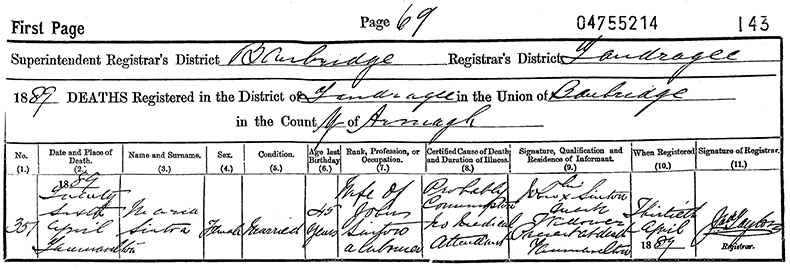 First Page
Page 69
04755214
143
Superintendent Registrar's District Banbridge
Registrar's District Tandragee
1889 DEATHS Registered in the District of Tandragee in the Union of Banbridge
in the County of Armagh
No. (1.)
Date and Place of Death. (2.)
Name and Surname. (3.)
Sex. (4.)
Condition. (5.)
Age last Birthday (6.)
Rank, Profession, or Occupation. (7.)
Certified Cause of Death and Duration of Illness. (8.)
Signature, Qualification and Residence of Informant. (9.)
When Registered (10.)
Signature of Registrar. (11.)
357
1889
Twenty
Sixth
April
Maria
Sinton
Female
Married
45
Years
Wife of
John
Sinton
a Labourer
Probably
Consumption
no medical
Attendant
John x Sinton
mark
Present at death
Thirtieth
April
1889
Jas Taylor
Registrar.